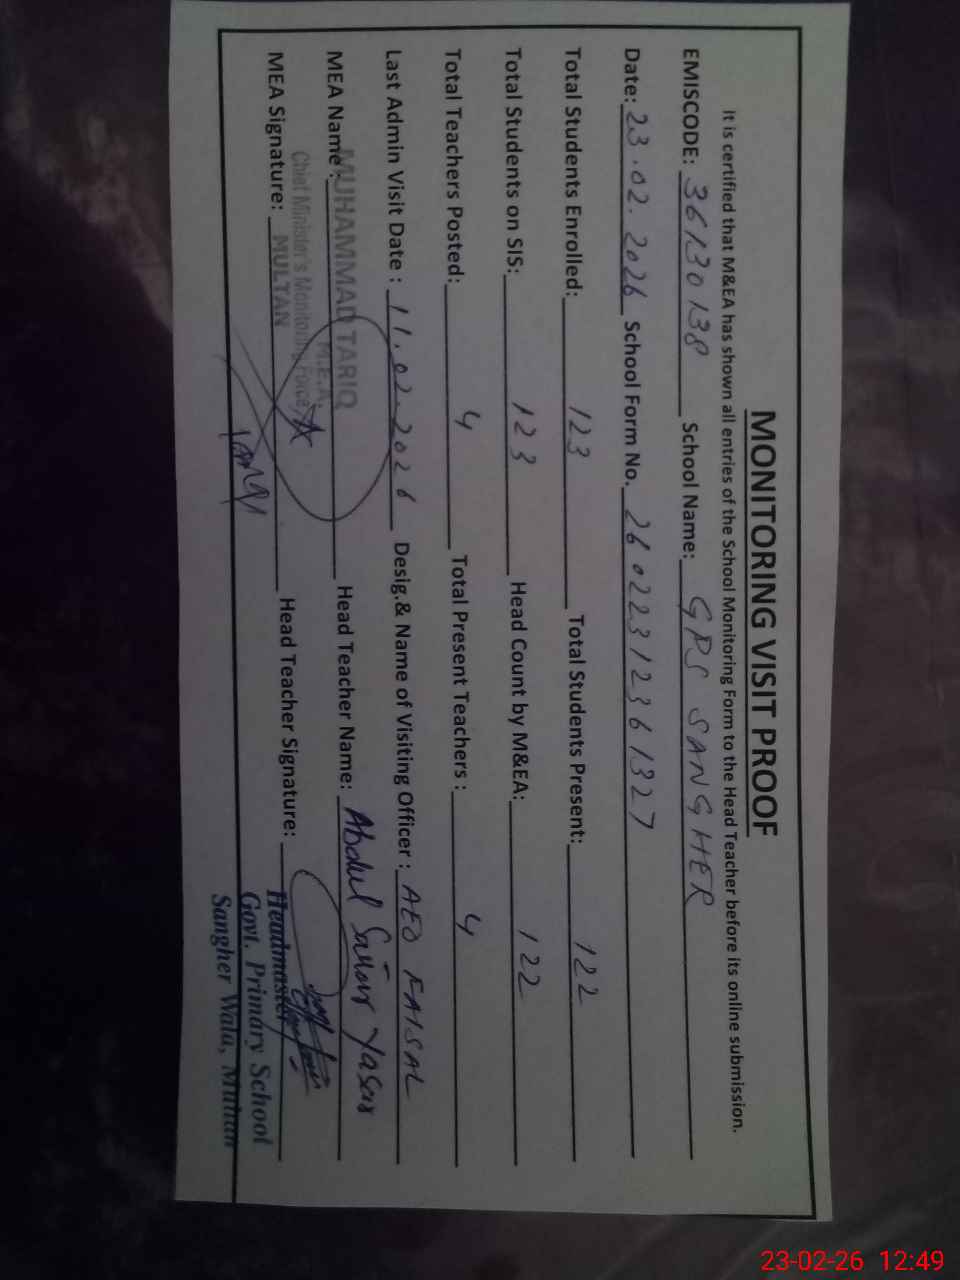 MONITORING VISIT PROOF
It is certified that M&EA has shown all entries of the School Monitoring Form to the Head Teacher before its online submission.
EMISCODE: 36130138 School Name: GPS SANGHER
Date: 23.02.2026 School Form No. 26022312361327
Total Students Enrolled: 123 Total Students Present: 122
Total Students on SIS: 123 Head Count by M&EA: 122
Total Teachers Posted: 4 Total Present Teachers : 4
Last Admin Visit Date : 11.02.2026 Desig.& Name of Visiting Officer : AEO FAISAL
MEA Name: MUHAMMAD TARIQ Head Teacher Name: Abdul Sattar Yasir
M.E.A.
Chief Minister's Monitoring Force
MEA Signature: MULTAN Head Teacher Signature:
Headmaster
Govt. Primary School
Sangher Wala, Multan
23-02-26 12:49